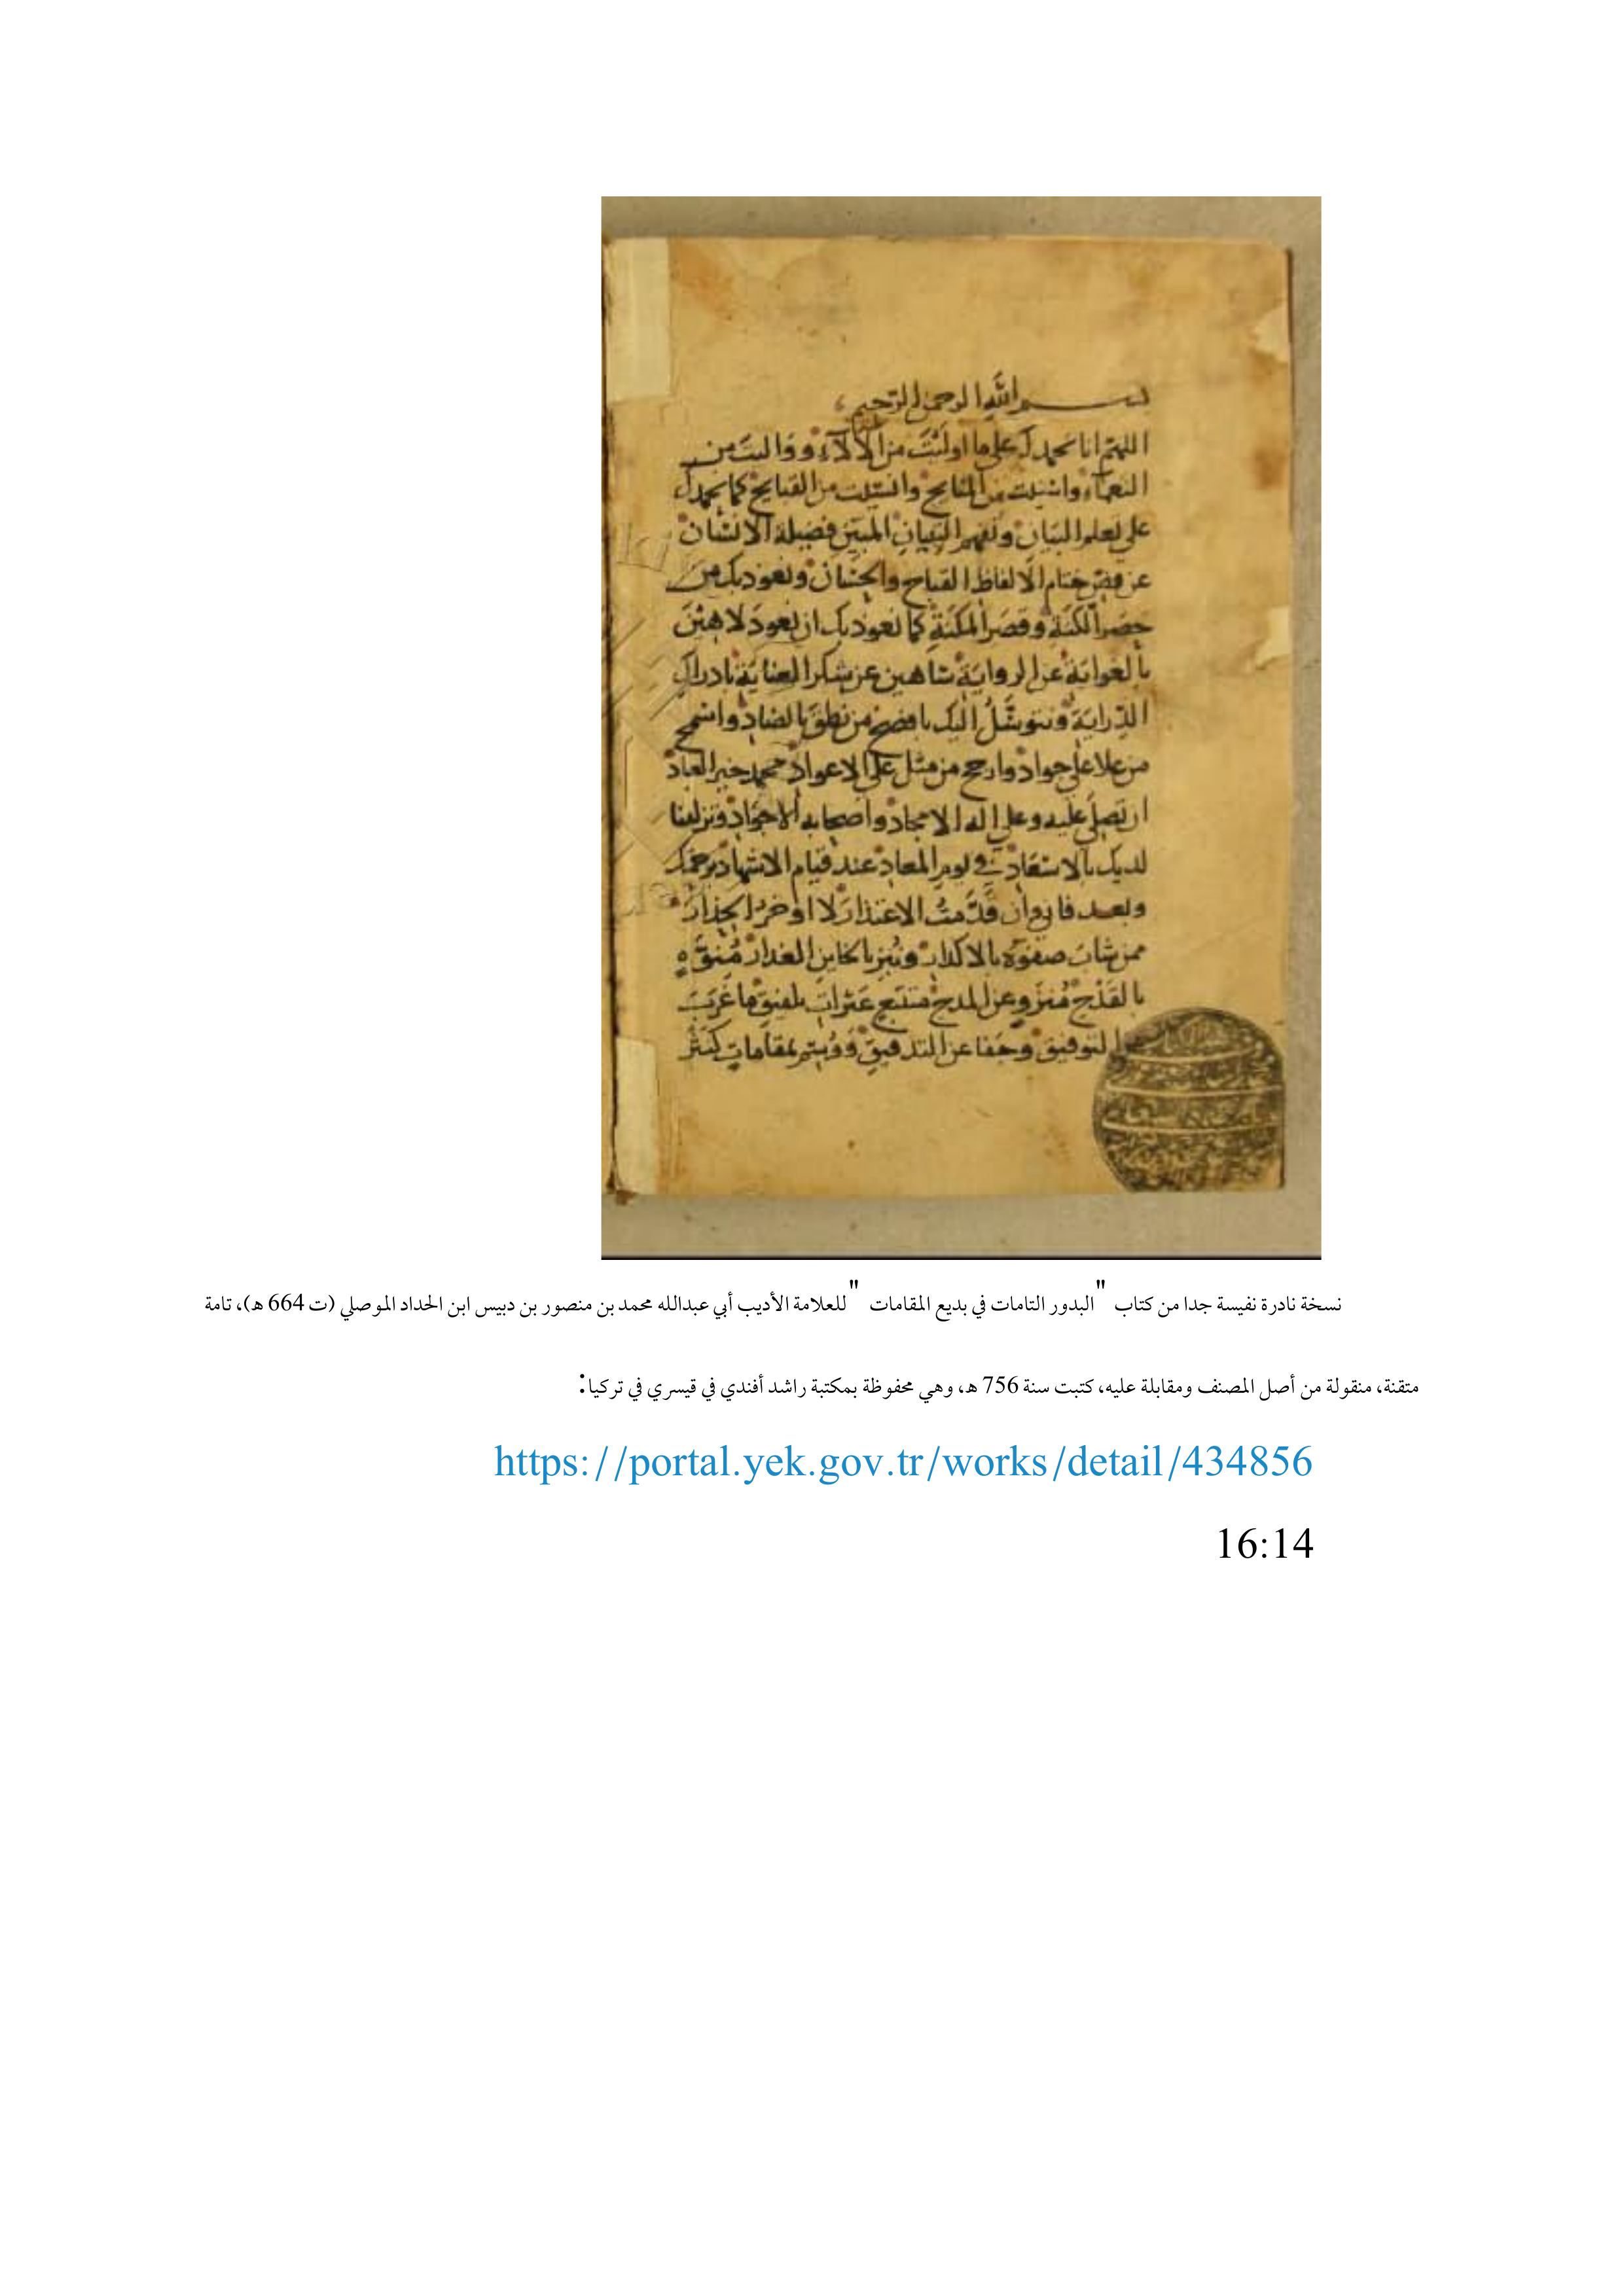 بسم الله الرحمن الرحيم
اللهم انا نحمدك على ما اوليت من الآلاء وواليت من
النعماء واسنيت من المنايح وانسيت من القبايح كما نحمدك
على تعلم البيان وتفهم التبيان المبين فضيلة الانسان
عن فض ختام الالفاظ القباح والحسان ونعوذ بك من
حصر اللكنة وقصر المكنة كما نعوذ بك ان نعود لاهين
بالغواية عن الرواية ساهين عن شكر العناية بادراك
الدراية ونتوسل اليك بافصح من نطق بالضاد واسمح
من علا على جواد وارجح من مثل على الاعواد محمد خير العباد
ان تصلي عليه وعلى اله الامجاد واصحابه الاجواد وتزلفنا
لديك بالاسعاد في يوم المعاد عند قيام الاشهاد برحمتك
وبعد فاني وان قدمت الاعتذار لا اوخر الحذار
ممن شاب صفوه بالاكدار
بالقدح منزو عن المدح متتبع عثرات تلفيق ما غرب
التوفيق وجفا عن التدقيق ووسم بمقامات كنثر
نسخة نادرة نفيسة جدا من كتاب "البدور التامات في بديع المقامات" للعلامة الأديب أبي عبدالله محمد بن منصور بن دبيس ابن الحداد الموصلي (ت 664 هـ)، تامة
متقنة، منقولة من أصل المصنف ومقابلة عليه، كتبت سنة 756 هـ، وهي محفوظة بمكتبة راشد أفندي في قيسري في تركيا:
https://portal.yek.gov.tr/works/detail/434856
16:14